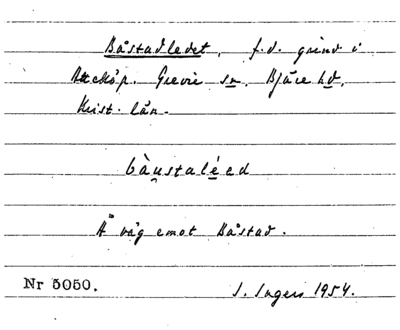 Båstadledet, f.d. grind i
Atteköp. Grevie sn. Bjäre hd.
Krist. län.
bàustaléed
Å väg emot Båstad.
Nr 5050. I. Ingers 1954.